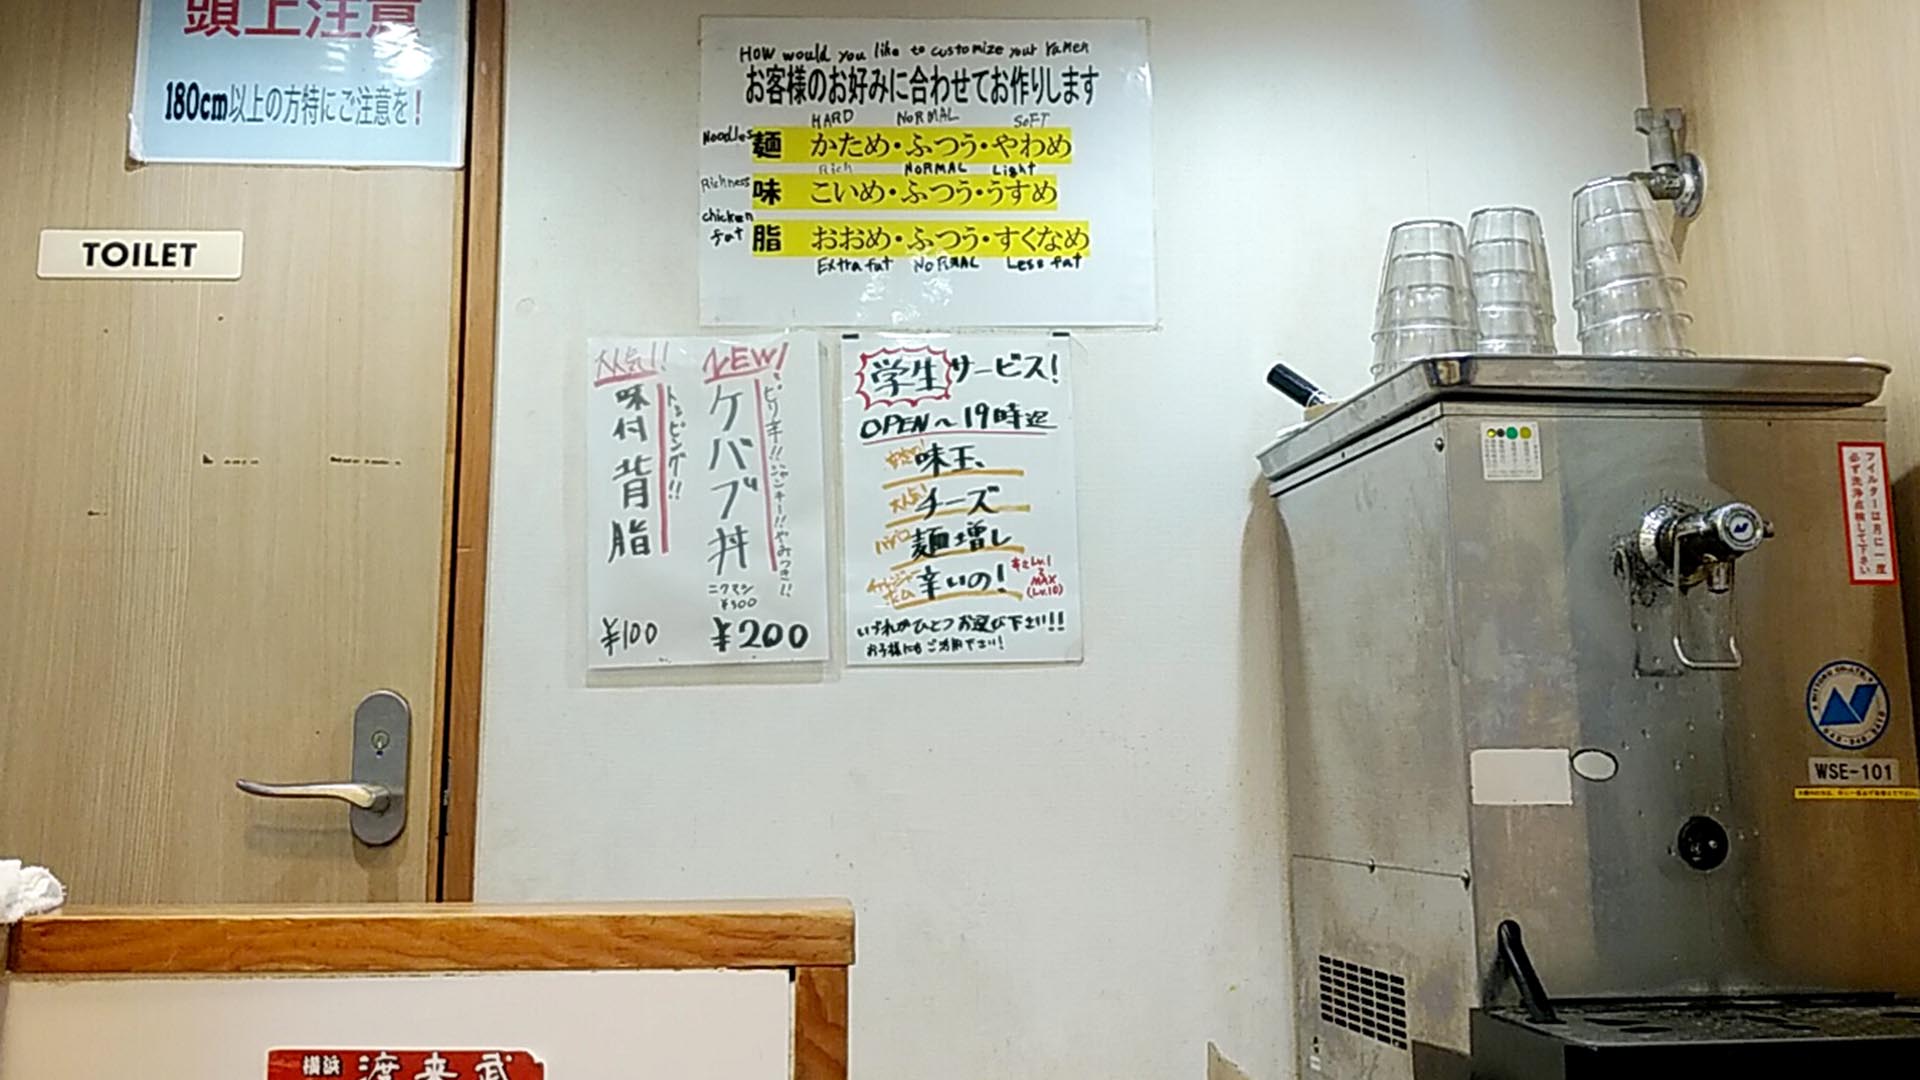 頭上注意
180cm以上の方特にご注意を!
TOILET
HOW would you like to customize your ramen
お客様のお好みに合わせてお作りします
HARD NORMAL SOFT
Noodles 麺 かため・ふつう・やわめ
Rich NORMAL Light
Richness 味 こいめ・ふつう・うすめ
chicken fat 脂 おおめ・ふつう・すくなめ
Extra fat NORMAL Less fat
大人気!!
トッピング!!
味付背脂
¥100
NEW!
ピリ辛!!ジャンキー!!やみつき!!
ケバブ丼
ニクマシ
¥300
¥200
学生サービス!
OPEN〜19時迄
味玉
大人気!
チーズ
麺増し
チャレンジャー
辛いの!
辛さLv.1
MAX
(Lv.10)
いづれかひとつお選び下さい!!
お子様にもご利用下さい!
フイルターは月に一度
必ず洗浄点検して下さい
WSE-101
横浜 渡来武